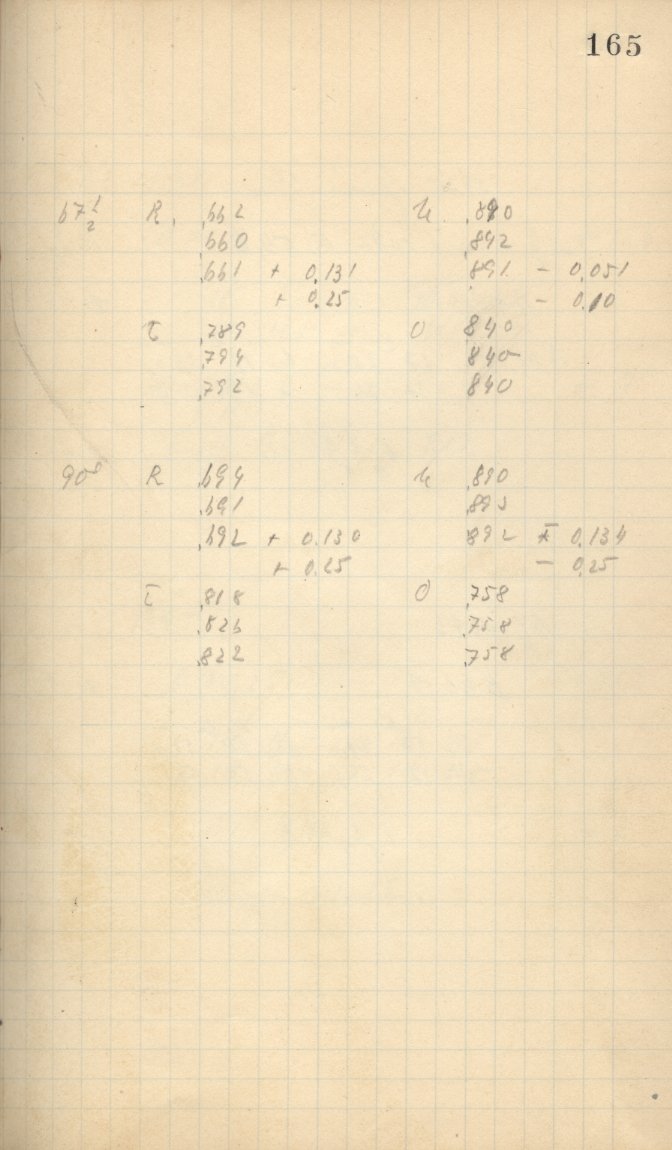 165
67½ R. .662 U .890
.660 .892
.661 + 0.131 .891 - 0.051
+ 0.25 - 0.10
T .789 O 840
.794 840
.792 840
90° R .694 U .890
.691 .893
.692 + 0.130 892 - 0.134
+ 0.25 - 0.25
T .818 O .758
.826 .758
.822 .758